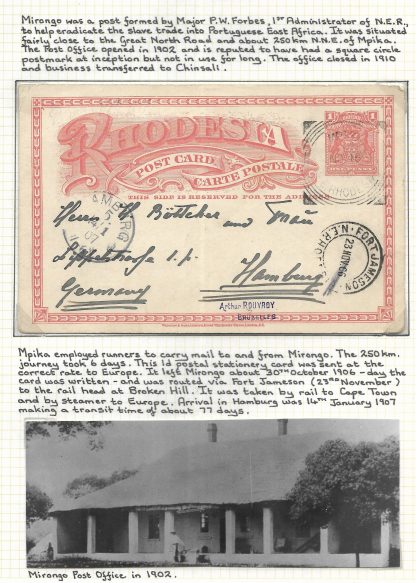 Mirongo was a post formed by Major P.W. Forbes, 1ST Administrator of N.E.R.,
to help eradicate the slave trade into Portuguese East Africa. It was situated
fairly close to the Great North Road and about 250km N.N.E. of Mpika.
The Post Office opened in 1902 and is reputed to have had a square circle
postmark at inception but not in use for long. The office closed in 1910
and business transferred to Chinsali.
RHODESIA
POST CARD
CARTE POSTALE
THIS SIDE IS RESERVED FOR THE ADDRESS
HAMBURG
07
NOV 16
RHODE
FORT JAMESON
N.E. RHO
23 NOV 06
Herrn H. Böttcher and Frau
Germany
Hamburg
Arthur ROUVROY
BRUXELLES
Mpika employed runners to carry mail to and from Mirongo. The 250km.
journey took 6 days. This 1d postal stationery card was sent at the
correct rate to Europe. It left Mirongo about 30TH October 1906 - day the
card was written - and was routed via Fort Jameson (23RD November)
to the rail head at Broken Hill. It was taken by rail to Cape Town
and by steamer to Europe. Arrival in Hamburg was 14TH January 1907
making a transit time of about 77 days.
Mirongo Post Office in 1902.